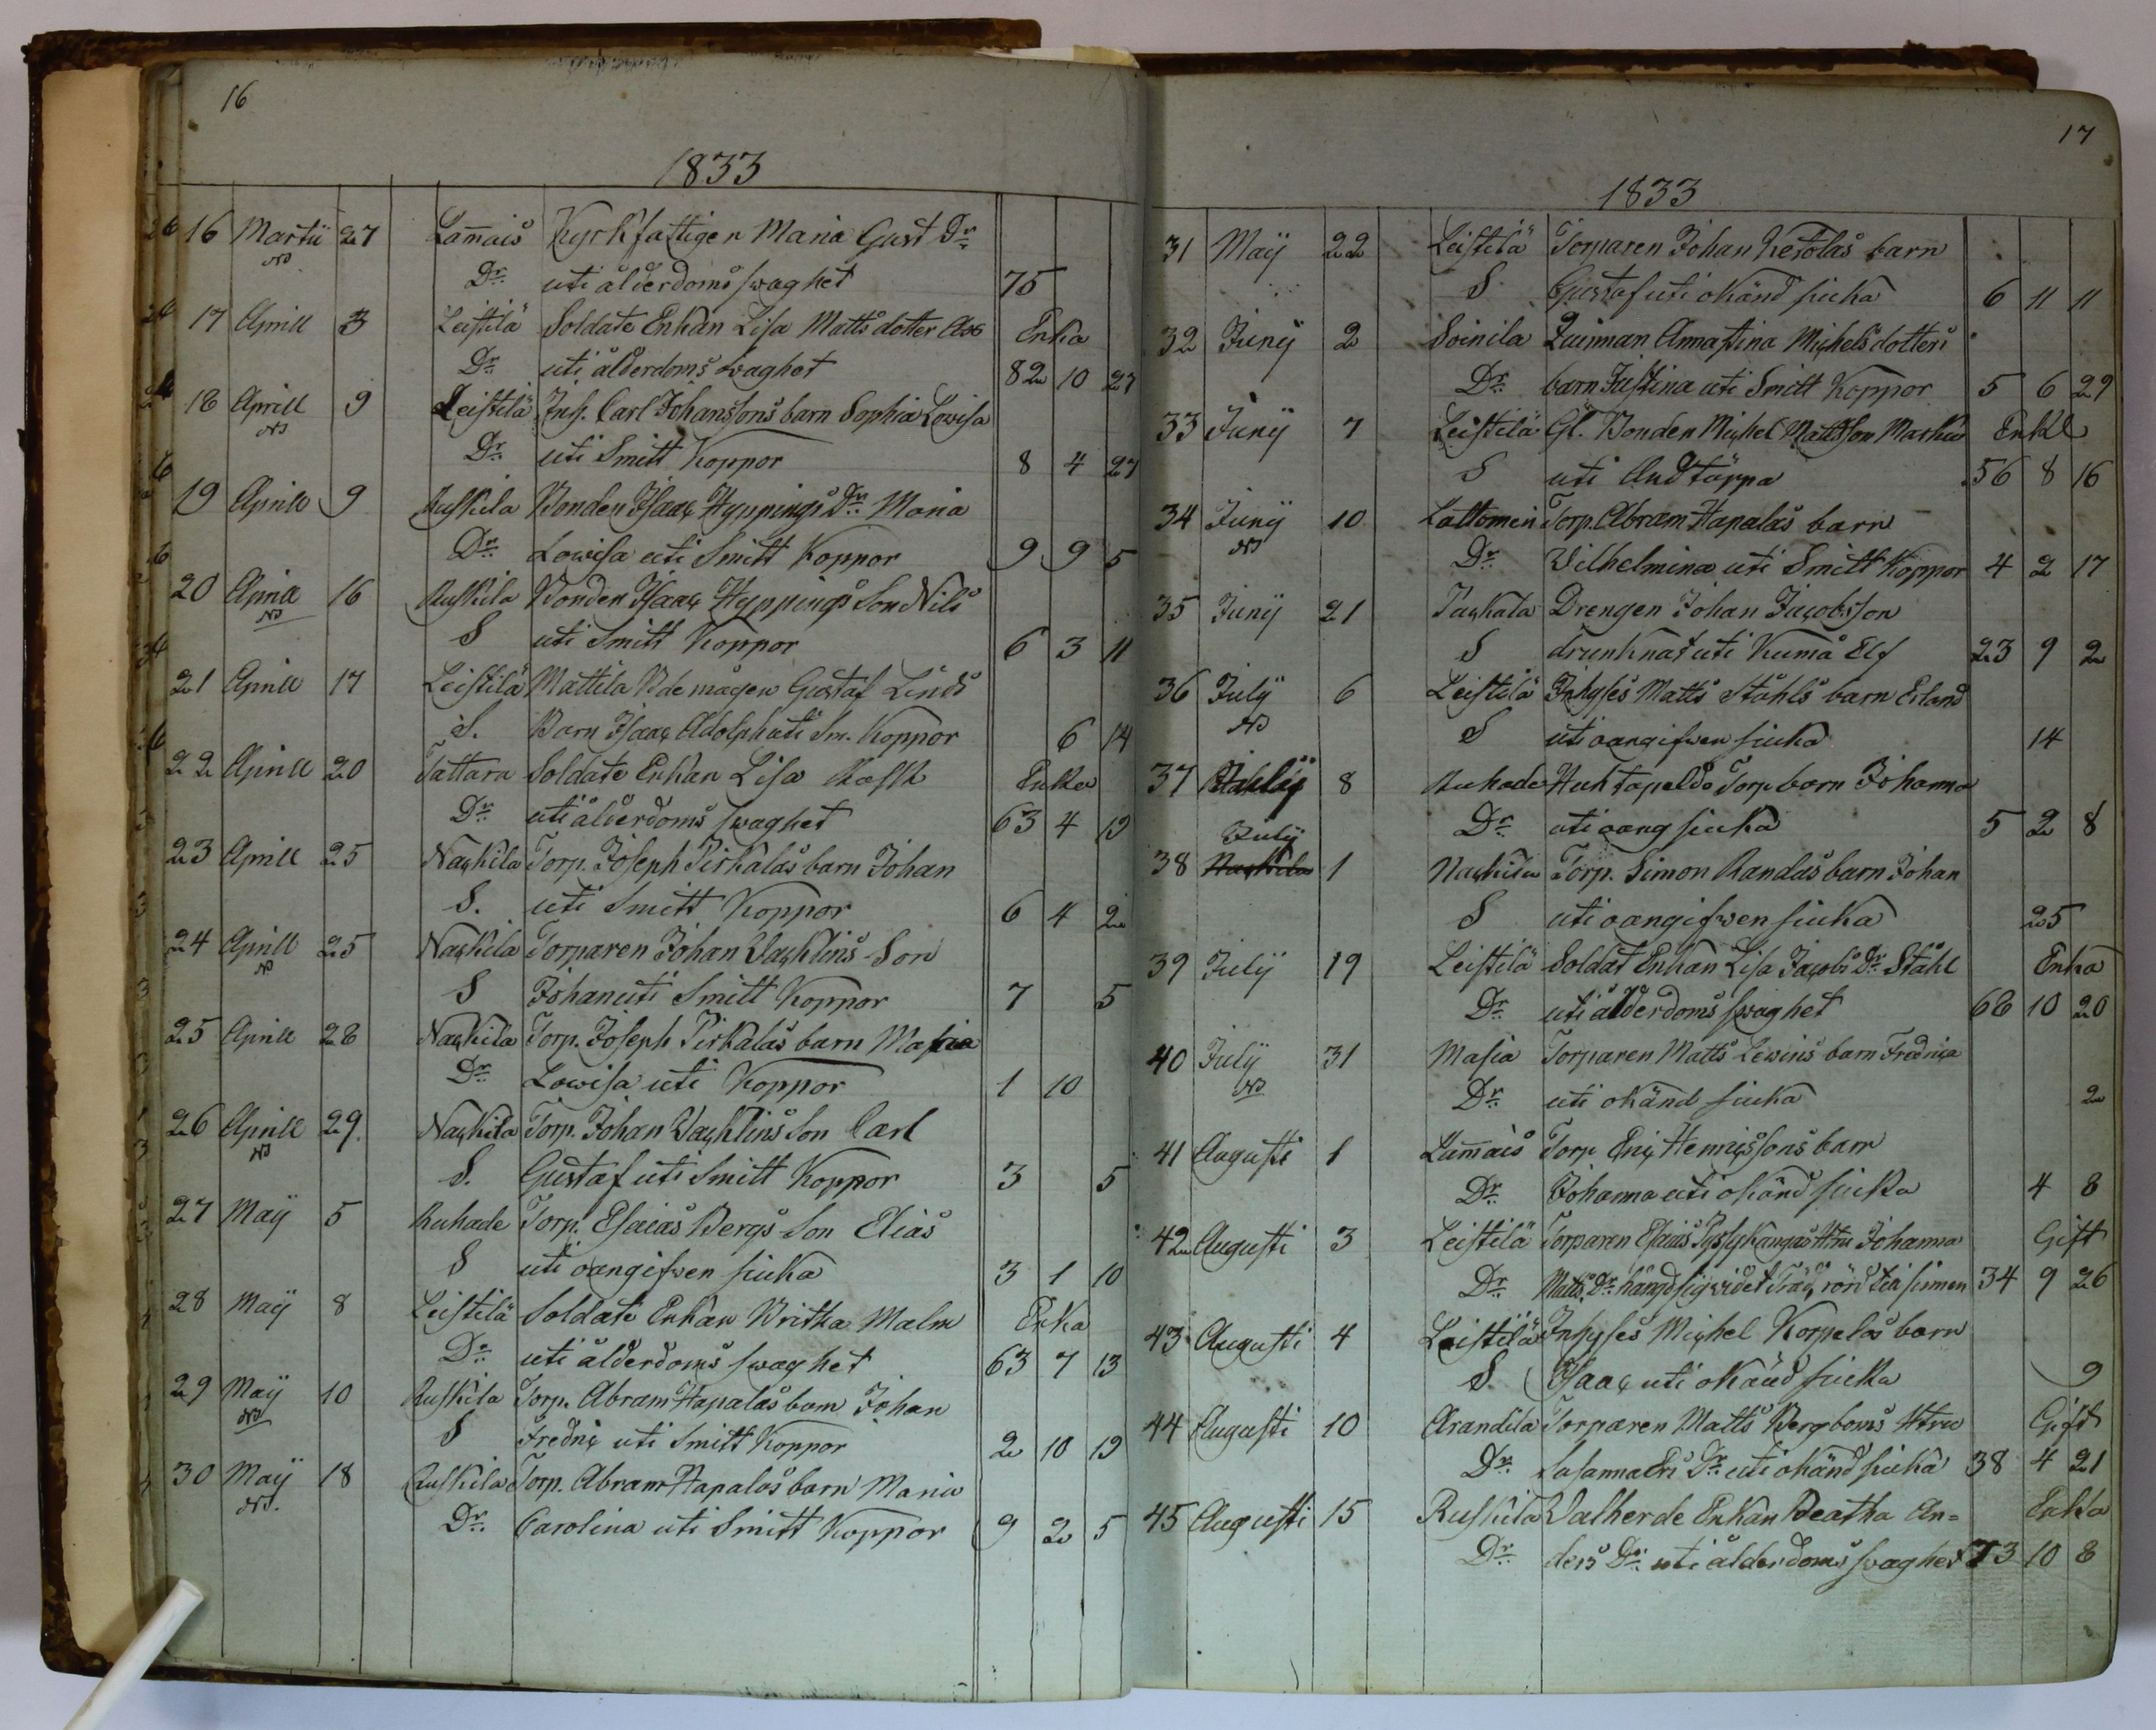 16
1833
16 Martii 27 Lam̄ais Kyrkfattigen Maria Gust Dr
Dr uti ålderdoms swaghet 75
17 Aprill 3 Leistilä Soldate Enkan Lisa Matts dotter Ax Enka
Dr uti ålderdoms swaghet 82 10 27
18 Aprill 9 Leistilä Inh. Carl Johanssons barn Sophia Lowisa
Dr uti Smitt Koppor 8 4 27
19 Aprill 9 Ruskila Bonden Isaac Hyppings Dr Maria
Dr Lowisa uti Smitt Koppor 9 9 5
20 Aprill 16 Ruskila Bonden Isaac Hyppings Son Nils
S uti Smitt Koppor 6 3 11
21 Aprill 17 Leistilä Mattila Bde mågen Gustaf Linds
S. Barn Isaac Adolph uti Sm. Koppor 6 14
22 Aprill 20 Tattara Soldate Enkan Lisa Rask Enka
Dr uti ålderdoms swaghet 63 4 19
23 Aprill 25 Nackila Torp. Joseph Pirkalas barn Johan
S. uti Smitt Koppor 6 4 2
24 Aprill 25 Nackila Torparen Johan Wacklins Son
S Johan uti Smitt Koppor 7 5
25 Aprill 28 Nackila Torp. Joseph Pirkalas barn Maria
Dr Lowisa uti Koppor 1 10
26 Aprill 29. Nackila Torp. Johan Wacklins Son Carl
S. Gustaf uti Smitt Koppor 3 5
27 Maij 5 Ruhade Torp. Esaias Bergs Son Elias
S uti oangifwen siuka 3 1 10
28 Maij 8 Leistilä Soldate Enkan Britha Malm Enka
Dr uti ålderdoms swaghet 63 7 13
29 Maij 10 Ruskila Torp. Abram Hapalas barn Johan
S Fredric uti Smitt Koppor 2 10 19
30 Maij 18 Ruskila Torp. Abram Hapalas barn Maria
Dr. Carolina uti Smitt Koppor 9 2 5
17
1833
31 Maij 22 Leistilä Torparen Johan Ketolas barn
S Gustaf uti okänd siuka 6 11 11
32 Junij 2 Soinila Qwinnan Annastina Michelsdotters
Dr barn Justina uti Smitt Koppor 5 6 29
33 Junij 7 Leistilä Gl. Bonden Michel Mattsson Marku Enkl
S uti Andtäppa 56 8 16
34 Junij 10 Lattomeri Torp. Abram Hapalas barn
Dr Wilhelmina uti Smitt Koppor 4 2 17
35 Junij 21 Packala Drengen Johan Jacobsson
S drunknat uti Kumå Elf 23 9 2
36 Julij 6 Leistilä Inhyses Matts Ståhls barn Erland
S uti oangifwen siuka 14
37 8 Ruhade Huhtapelds Torp barn Johanna
Dr uti oang siuka 5 2 8
Julij
38 Nackila 1 Nackila Torp. Simon Randas barn Johan
S uti oangifwen siuka 25
39 Julij 19 Leistilä Soldat Enkan Lisa Jacobs Dr Ståhl Enka
Dr uti ålderdoms swaghet 68 10 20
40 Julij 31 Masia Torparen Matts Lewins barn Fredrica
Dr uti okänd siuka 2
41 Augusti 1 Lam̄ais Torp Eric Henricssons barn
Dr Johanna uti okänd siuka 4 8
42 Augusti 3 Leistilä Torparen Esaias Pyssykangas Htru Johanna Gift
Dr Matts Dr hängd sig vid et Träd, rörd till sinnen 34 9 26
43 Augusti 4 Leistilä Inhyses Michel Korpelas barn
S. Isaac uti okänd siuka 9
44 Augusti 10 Arandila Torparen Matts Bergboms Htru Gift
Dr Susanna Ers Dr uti okänd siuka 38 4 21
45 Augusti 15 Ruskila Walherde Enkan Beatha An= Enka
Dr ders Dr uti ålderdoms swaghet 73 10 8